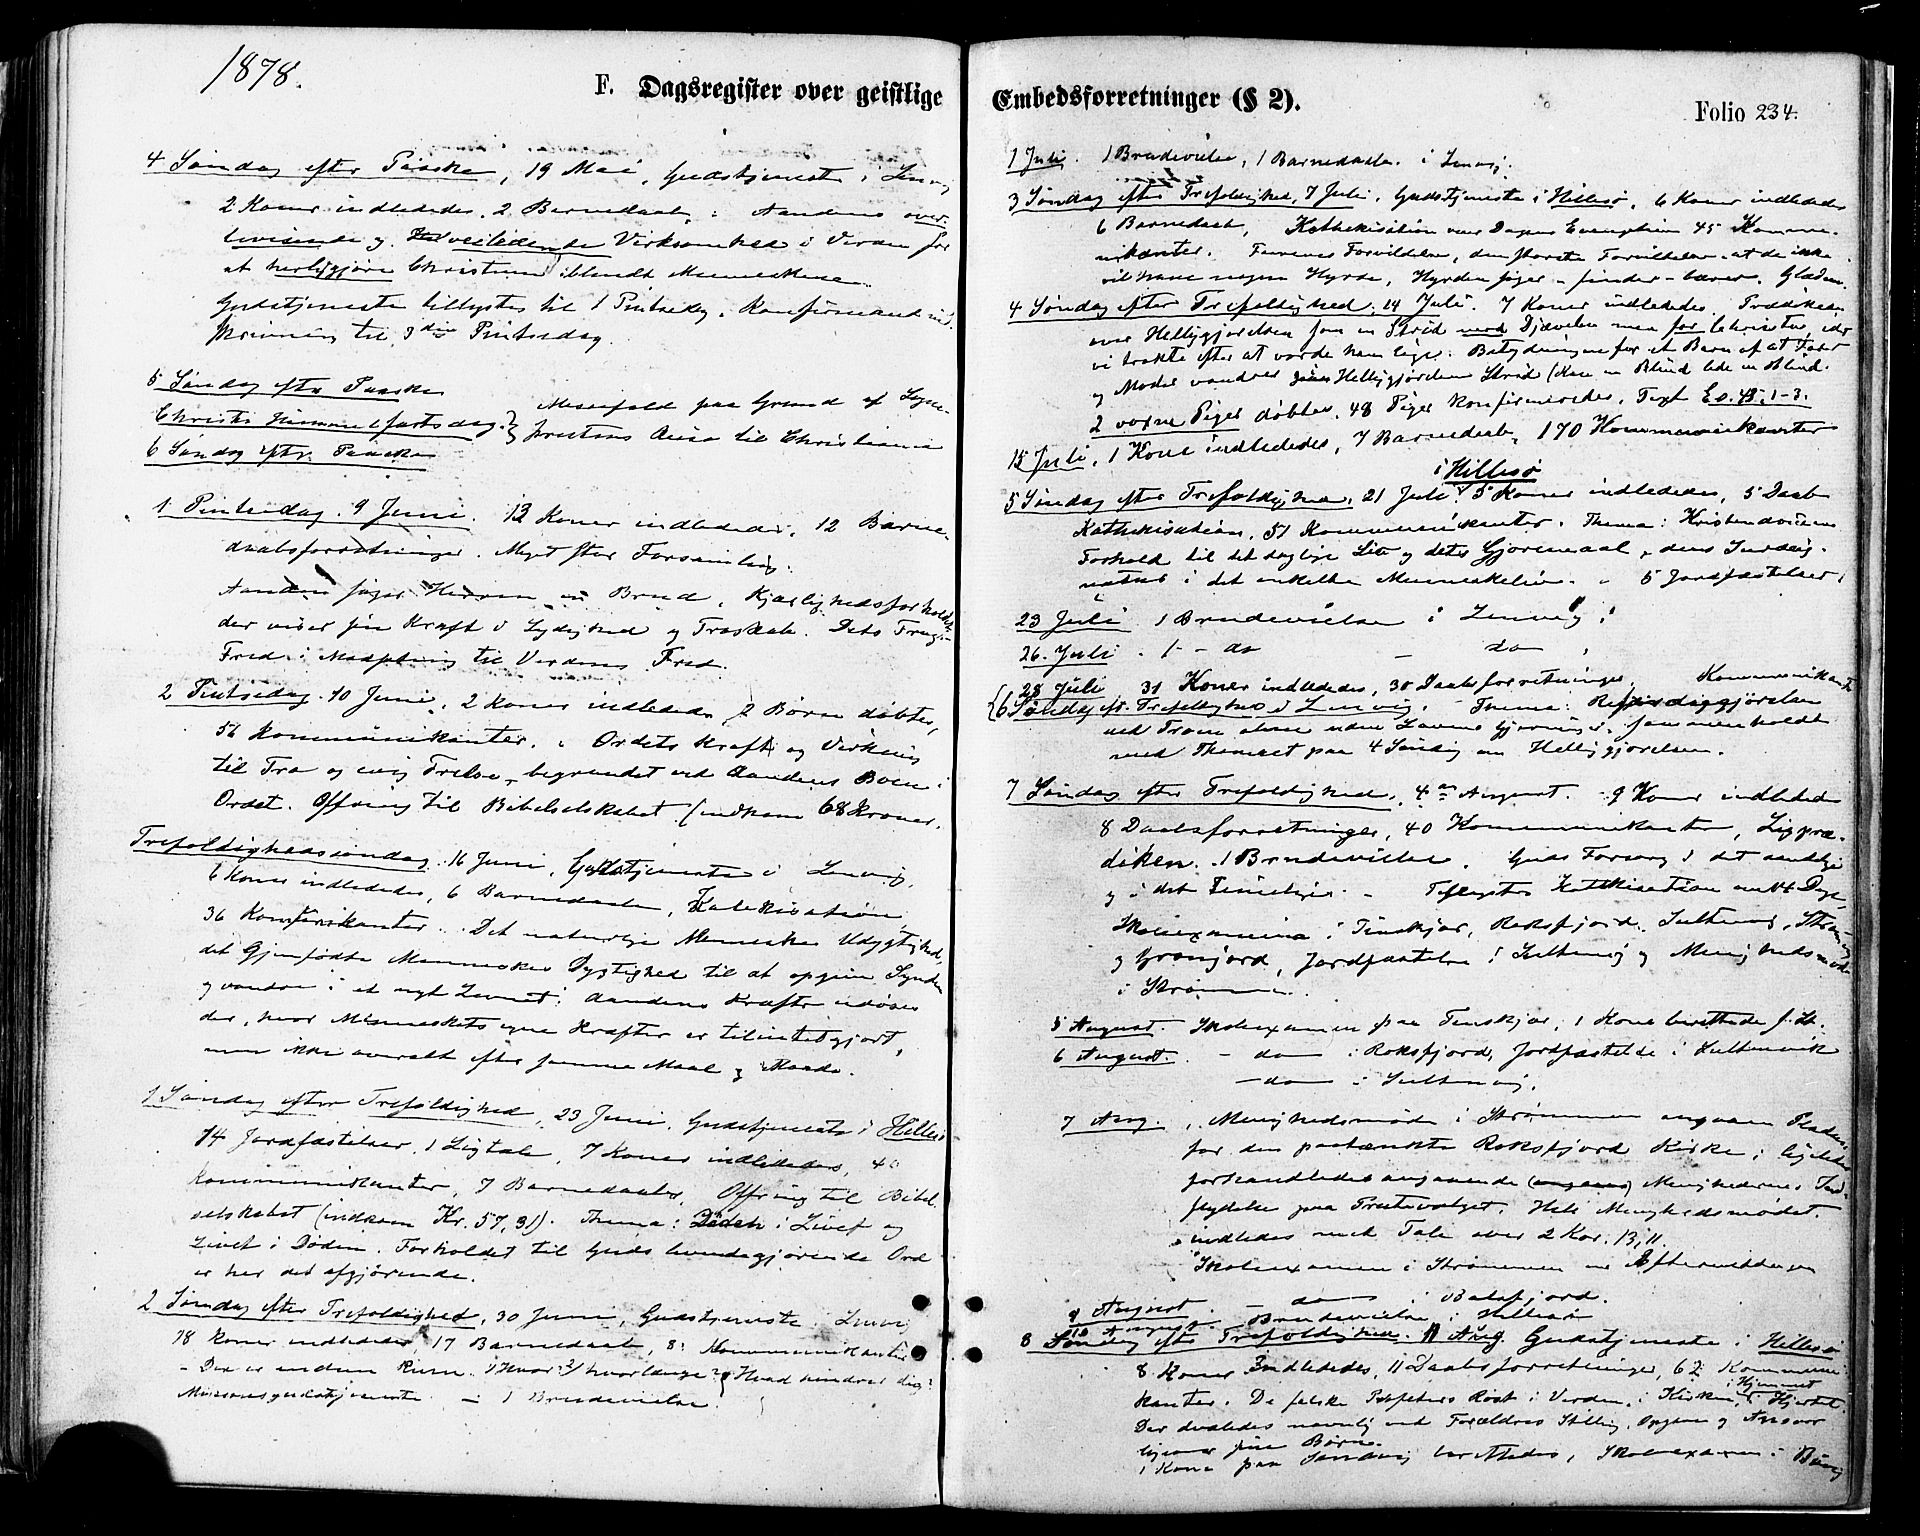 1878.
F. Dagsregister over geistlige
4 Søndag efter Paaske, 19 Mai, Gudstjeneste i Lenvig
2 Koner indledede, 2 Barnedaab, Aandens over
bevisende og veiledende Virksomhed i Verden for
at herliggjøre Christum iblandt Menneskene
Gudstjeneste tillystes til 1 Pintsedag, Konfirmand
skrivning til 3die Pintsedag.
5 Søndag eftr Paaske
Christi Himmelfartsdag
6 Søndag eftr. Paaske
Messefald paa Grund af Sogne-
prestens Reise til Christiania
1 Pintsedag 9 Juni. 13 Koner indledede, 12 Barne
daabsforretninger. Meget stor Forsamling.
Aanden søger Herren en Brud, Kjærlighedsforholdet
der viser sin Kraft i Lydighed og Troskab. Dets Frugt
Fred i Modsetning til Verdens Fred.
2 Pintsedag 10 Juni, 2 Koner indledede 2 Børn døbte,
56 Kommunikanter. Ordets Kraft og Virkning
til Tro og evig Frelse, begrundet ved Aandens Boen i
Ordet. Offring til Bibelselskabet (indkom 68 Kroner.
Trefoldighedssøndag 16 Juni, Gudstjeneste i Lenvig,
6 Koner indledede, 6 Barnedaab, Katekisation
36 Kommunikanter. Det naturlige Menneskes Udygtighed,
det Gjenfødte Menneskes Dygtighed til at opgive Synden
og vandre i et nyt Levnet. Aandens Kræfter udøses
der, hvor Menneskets egne Kræfter er tilintetgjort,
men ikke overalt efter samme Maal og Maade.
1 Søndag efter Trefoldighed, 23 Juni, Gudstjeneste i Hillesø
14 Jordfæstelser, 1 Ligtale, 7 Koner indledede, 40
Kommunikanter, 7 Barnedaaber, Offring til Bibel
selskabet (indkom Kr. 57,31). Thema: Døden i Livet og
Livet i Døden. Forholdet til Guds levendegjørende Ord
er her det afgjørende.
2 Søndag efter Trefoldighed, 30 Juni, Gudstjeneste i Lenvig
18 Koner indledede, 17 Barnedaab, 8 Kommunikanter
- Der er endnu Rum. 1/ Hvor? 2/ hvorlænge? 3/ Hvad hindrer dig?
Missionsgudstjeneste - 1 Brudevielse.
Embedsforretninger (§ 2).
Folio 234.
1 Juli. 1 Brudevielse, 1 Barnedaab i Lenvig.
3 Søndag efter Trefoldighed, 7 Juli, Gudstjeneste i Hillesø, 6 Koner indledede
6 Barnedaab, Kathekisation over Dagens Evangelium 45 Kommu-
nikanter. Faarenes Forvildelse, den største Forvildelse at de ikke
vil have nogen Hyrde, Hyrden søger - finder - bærer. Glæden.
4 Søndag efter Trefoldighed. 14 Juli. 7 Koner indledede. Prædiken
over Helliggjørelsen som en Strid mod Djævelen men for Christus, idet
vi trakte efter at vorde ham lige. Betydningen for et Barn af at Fader
og Moder vandrer Helliggjørelsens Strid (Kan en Blind lede en Blind.
2 voxne Piger døbtes, 48 Piger konfirmeredes, Text Es. 43, 1-3.
15 Juli, 1 Kone indlededes, 7 Barnedaab, 170 Kommunikanter
i Hillesø
5 Søndag efter Trefoldighed, 21 Juli 5 Koner indledede, 5 Daab
Kathekisation, 51 Kommunikanter. Thema: Kristendommens
Forhold til det daglige Liv og dets Gjøremaal,
i det enkelte Menneskeliv. 5 Jordfæstelser
23 Juli 1 Brudevielse i Lenvig.
26. Juli 1 - do - do
28 Juli 31 Koner indledede, 30 Daabsforretninger, Kommunikanter
(6 Søndag eft. Trefoldighed i Lenvig. Thema: Retfærdiggjørelsen
ved Troen alene uden Lovens Gjerninger, sammenholdt
med Themaet paa 4 Søndag om Helliggjørelsen.
7 Søndag efter Trefoldighed, 4de August. 9 Koner indledede
8 Daabsforretninger, 40 Kommunikanter, Ligpræ-
diken. 1 Brudevielse. Guds Forsorg i det aandelige
og i det Timelige. Tillystes Kathekisation om 14 Dage,
Skolexamina i Finskjær, Roksfjord, Sultenvig, Strømmen
og Grønjord, Jordfæstelse i Sultenvig og Menighedsmøde
i Strømmen.
5 August. Skoleexamen paa Finskjær, 1 Kone berettede s. St.
6 August. - do - i Roksfjord, Jordfæstelse i Sultenvik
- do - i Sultenvig.
7 Aug. Menighedsmøde i Strømmen angaaende Pladsen
for den paatænkte Roksfjord Kirke; ligeledes
forhandledes angaaende Menighedernes Ind-
flydelse paa Prestevalget. Hele Menighedsmødet
indledes med Tale over 2 Kor. 13, 11.
Skoleexamen i Strømmen om Eftermiddagen
9 August. - do - i Balsfjord.
10 August Brudevielse i Hillesø
8 Søndag eftr Trefoldighed. 11 Aug. Gudstjeneste i Hillesø
8 Koner Indledede, 11 Daabsforretninger, 62 Kommuni
kanter. De falske Profeters Røst i Verden, i Kirken, i Hjemmet i Hjertet.
Der dvæledes navnlig ved Forældres Stilling, Opgave og Ansvar
ligeover sine Børn.
1 Kone paa Sandvig berettedes, Skoleexamen i